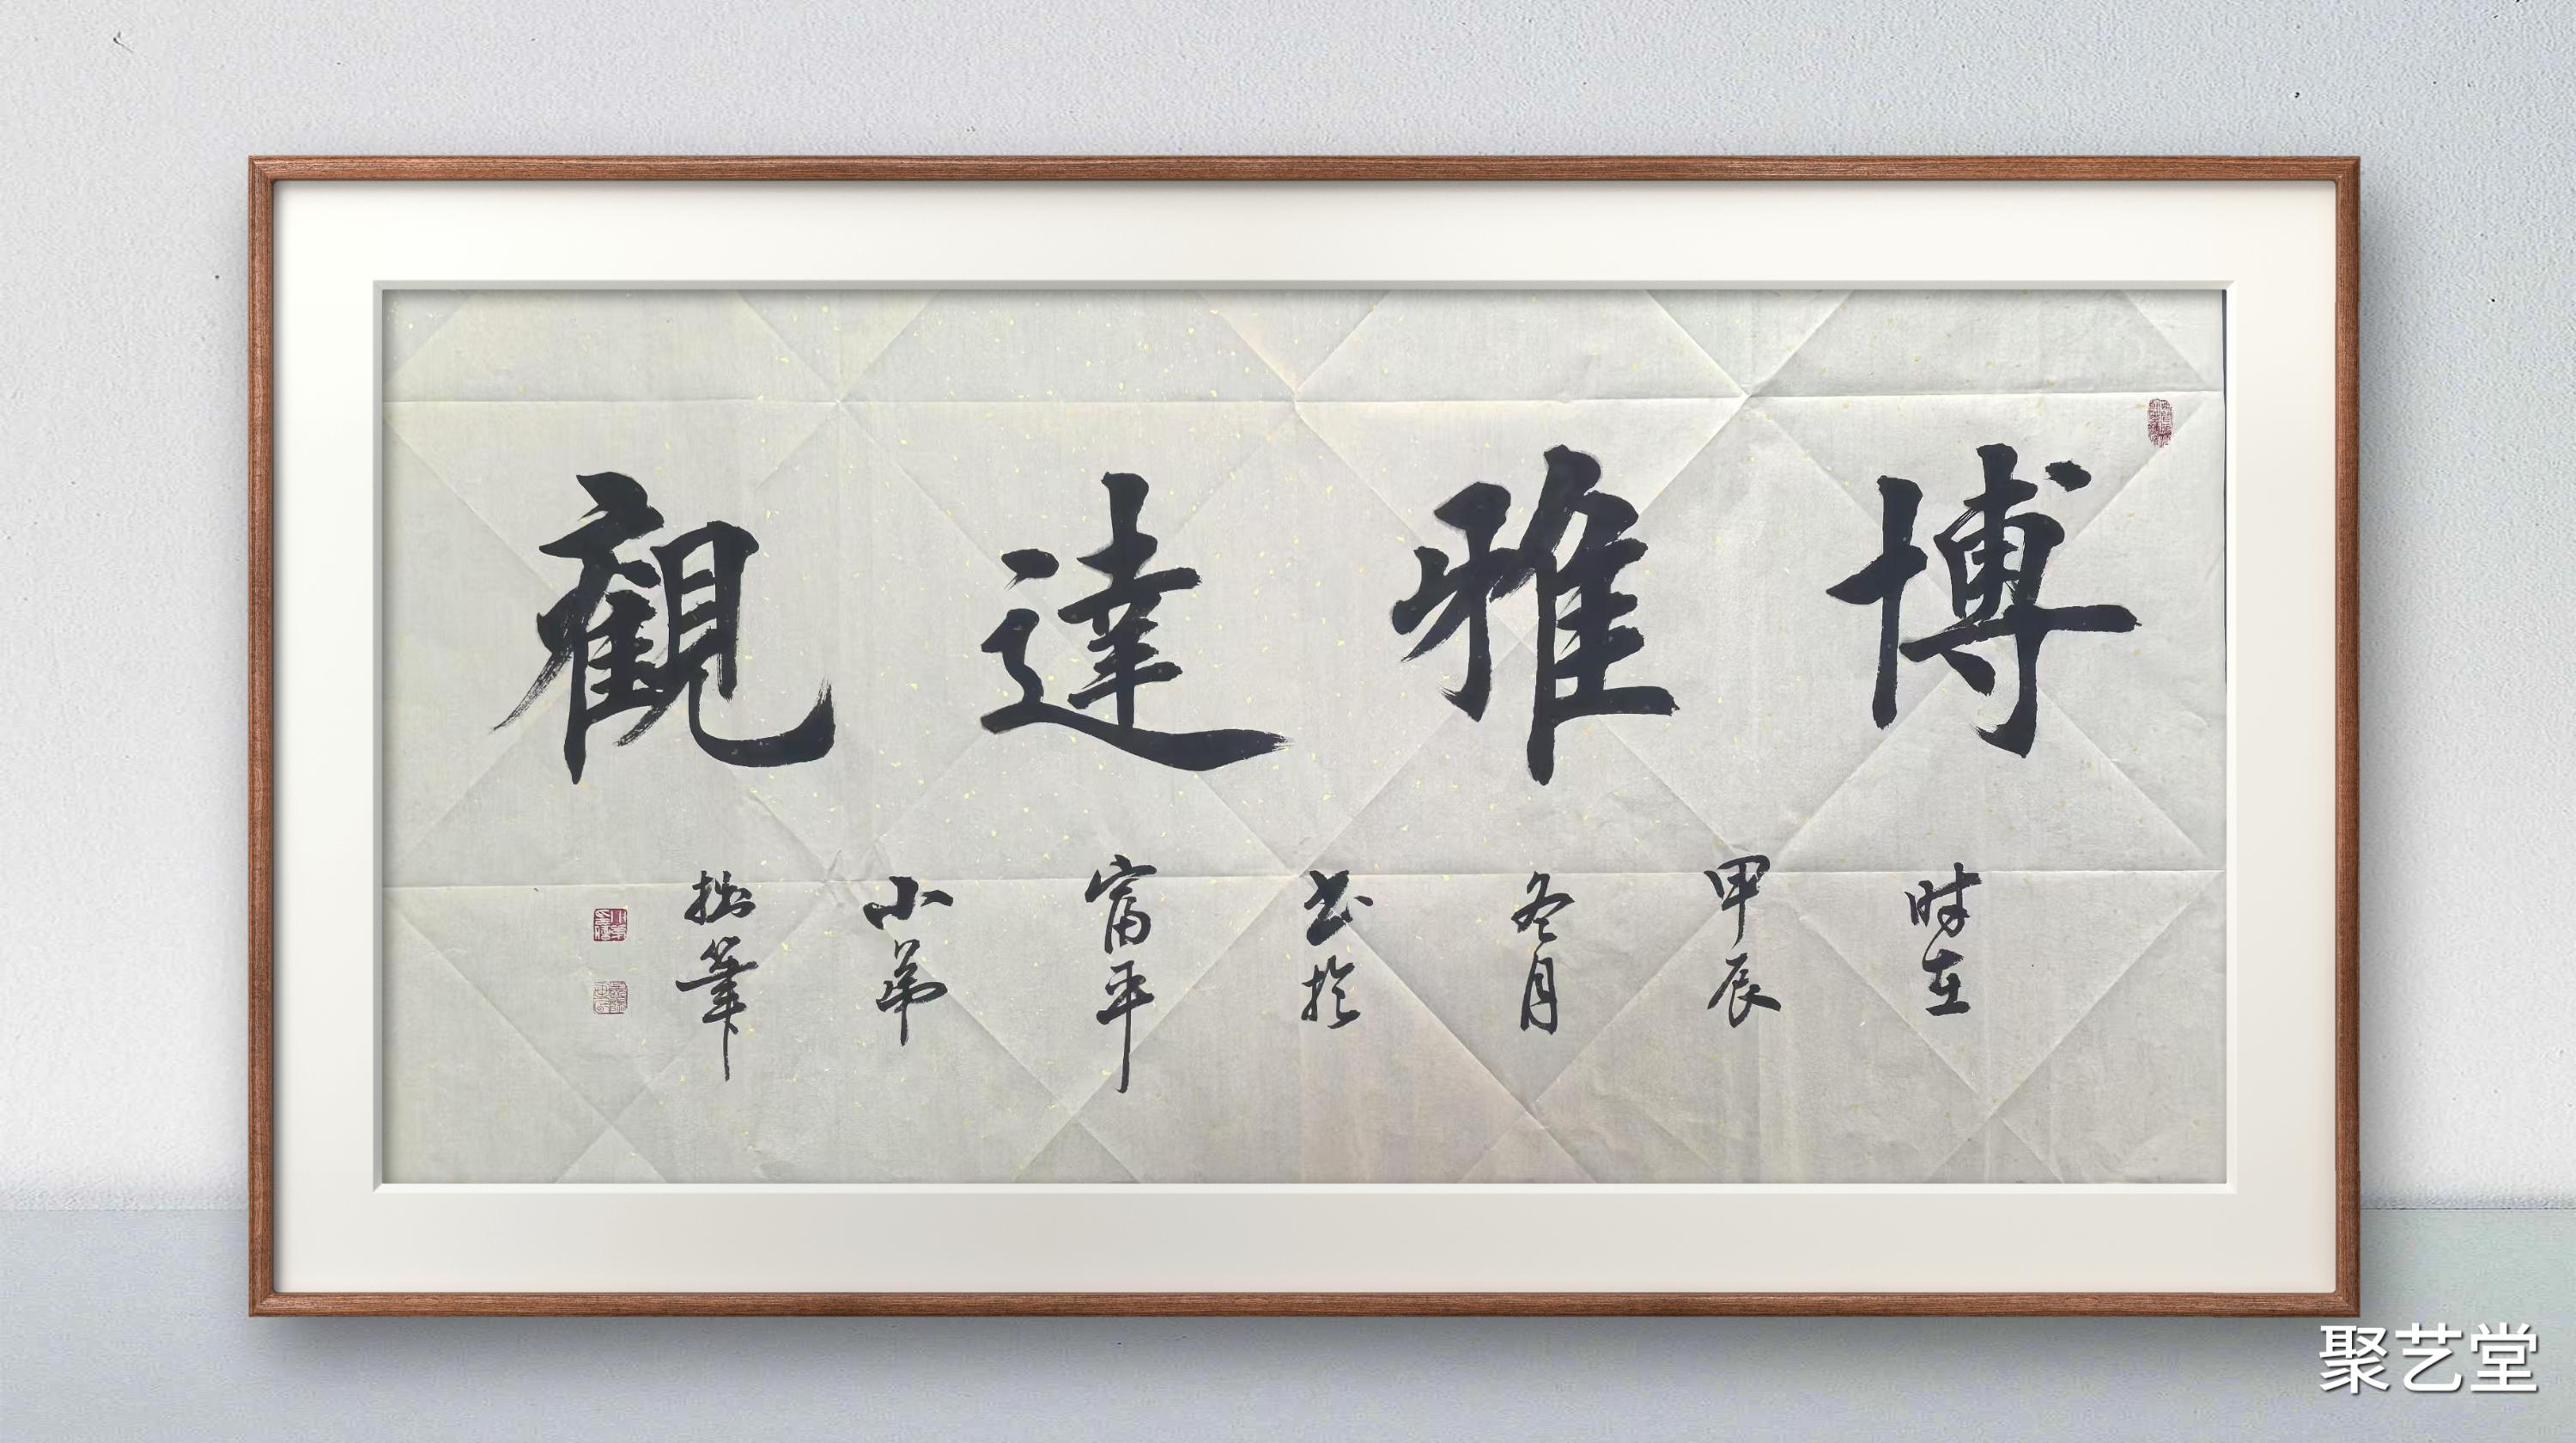 博雅達觀
時在
甲辰
冬月
书於
富平
小弟
拙筆
聚艺堂